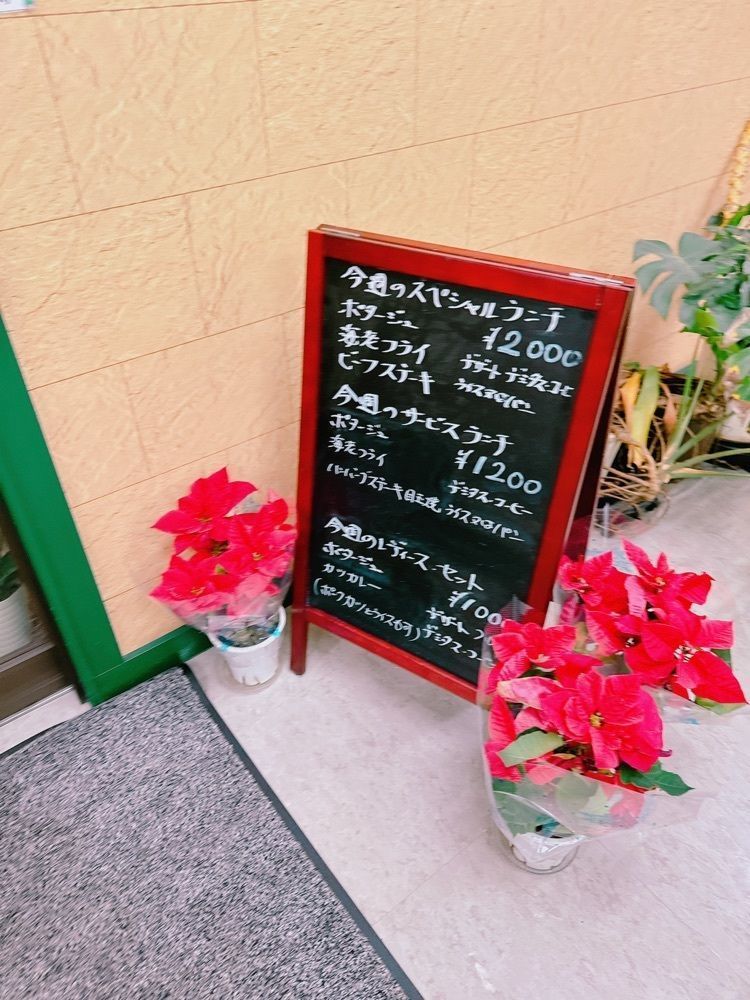 今週のスペシャルランチ
ポタージュ ¥2000
海老フライ デザート デミタスコーヒー
ビーフステーキ ライス又はパン
今週のサービスランチ
ポタージュ ¥1200
海老フライ デミタスコーヒー
ハンバーグステーキ目玉焼 ライス又はパン
今週のレディースセット
ポタージュ ¥100
カツカレー デザート
(ポークカツとライスも可) デミタスコー